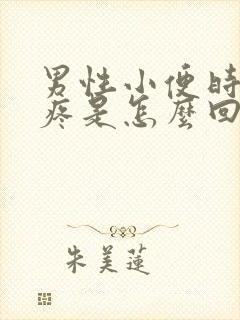 男性小便时
疼是怎麼回
朱美蓮